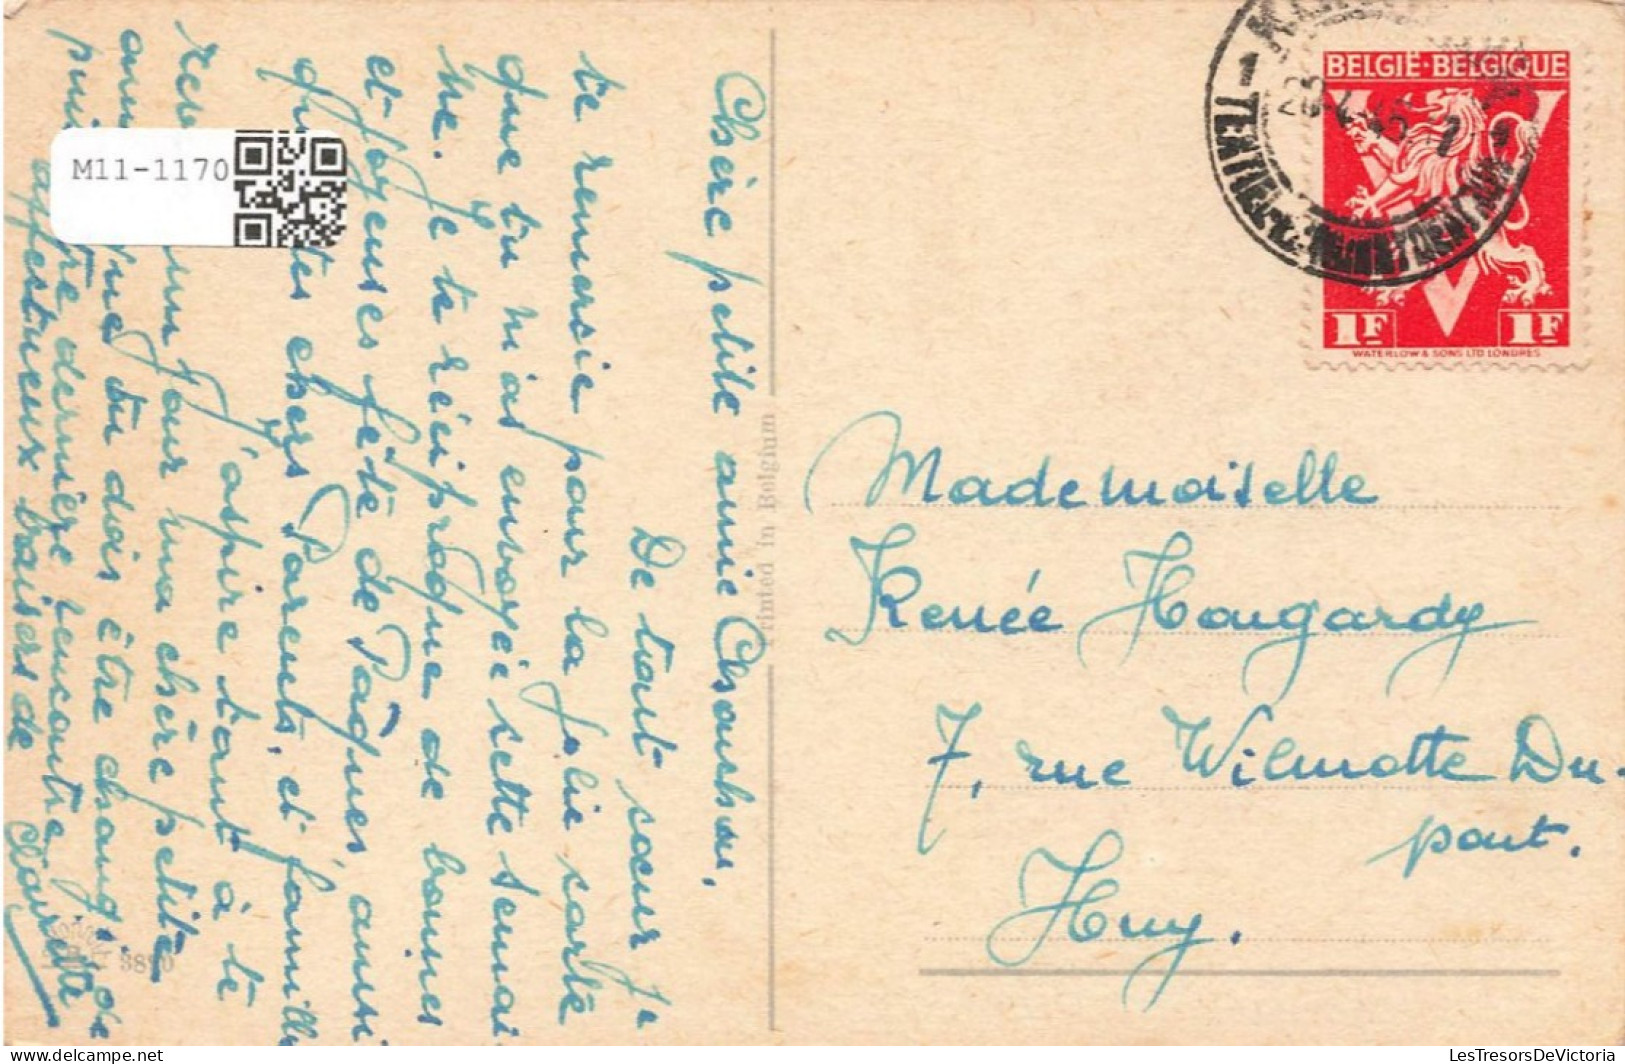 Chère petite amie Chouchou,
De tout cœur je
te remercie pour la jolie carte
que tu m'as envoyée cette semai-
ne. Je te réciproque de bonnes
et joyeuses fête de Pâques, ainsi
chers Parents, et famille
j'aspire tant à te
un jour ma chère petite
tu dois être chang
dernière rencontre
affectueux baisers de
M11-1170
3890
Printed in Belgium
BELGIË·BELGIQUE
1F 1F
WATERLOW & SONS LTD LONDRES
Mademoiselle
Renée Hougardy
7, rue Wilmotte Du-
pont.
Huy.
© delcampe.net
LesTresorsDeVictoria